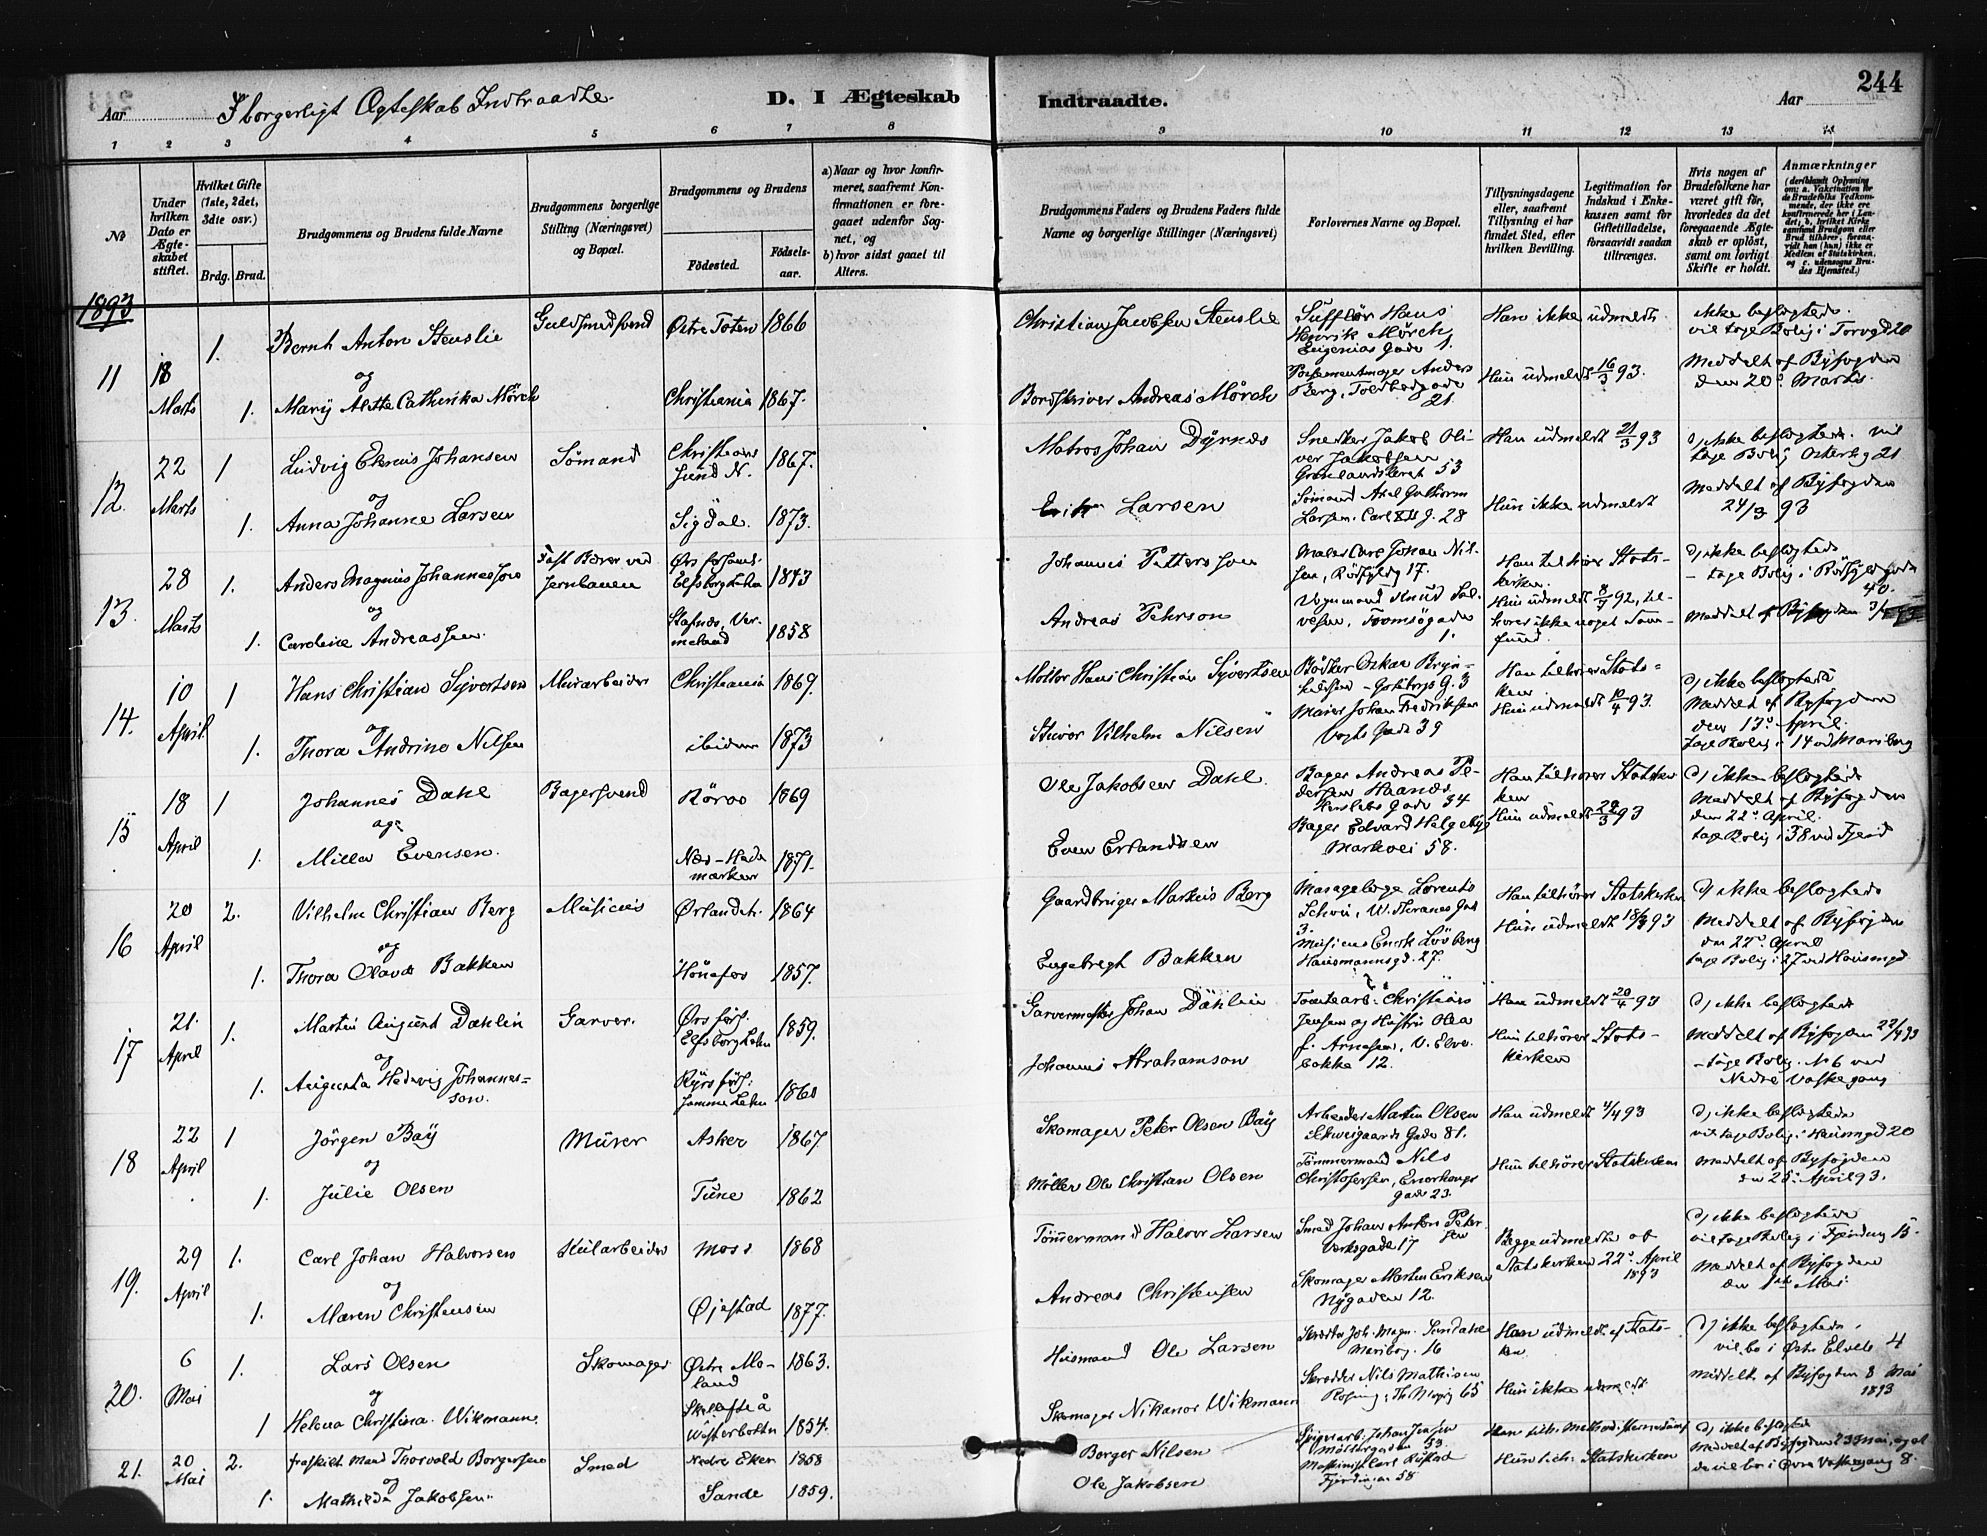 244
Aar
I borgerligt Ægteskab Indtraadte
D. I Ægteskab
Indtraadte.
Aar
1 2 3 4 5 6 7 8 9 10 11 12 13 14
No
Under hvilken Dato er Ægteskabet stiftet.
Hvilket Gifte (1ste, 2det, 3die osv.)
Brdg. Brud.
Brudgommens og Brudens fulde Navne
Brudgommens borgerlige Stilling (Næringsvei) og Bopæl.
Brudgommens og Brudens
Födested.
Födsels-aar.
a) Naar og hvor konfirmeret, saafremt Konfirmationen er foregaaet udenfor Sognet, og
b) hvor sidst gaaet til Alters.
Brudgommens Faders og Brudens Faders fulde Navne og borgerlige Stillinger (Næringsvei)
Forlovernes Navne og Bopæl.
Tillysningsdagene eller, saafremt Tillysning ei har fundet Sted, efter hvilken Bevilling.
Legitimation for Indskud i Enkekassen samt for Giftetilladelse, forsaavidt saadan tiltrænges.
Hvis nogen af Brudefolkene har været gift för, hvorledes da det foregaaende Ægteskab er oplöst, samt om lovligt Skifte er holdt.
Anmærkninger
1893
11 18 Marts 1. Bernh Anton Stenslie Guldsmedsvend Östre Toten 1866 Christian Jacobsen Stenslie
Hans Henrik Mörch Eugenias Gade 1. Han ikke udmeldt ikke beslægtede. vil tage Bolig i Torvgd 20
og
1. Mary Alette Catherika Mörch Christiania 1867. Bordskriver Andreas Mörch
Anders Berg, Toldbodgade 21. Hun udmeldt 16/3 93. Meddelt af Byfogden den 20de Marts.
12. 22 Marts 1 Ludvig Elenius Johansen Sömand Christiansund N. 1867. Matros Johan Dyrnæs
Snedker Jakob Oliver Jakobsen Grönlandsleret 53 Han udmeldt 21/3 93 ikke beslægtede. vil tage Bolig Osterhg 21
og
1. Anna Johanne Larsen Sigdal. 1873. Larsen
Sömand Axel Guthorm Larsen. Carl XII G. 28 Hun ikke udmeldt Meddelt af Byfogden 24/3 93
13. 28 Marts 1. Anders Magnus Johannesson Fast Bærer ved Jernbanen Elfsborg Lehn 1843 Johannis Pettersson
Maler Carl Johan Nilsen, Rödfyldg 17. Han tilhörer Statskirken. ikke beslægtede - tage Bolig i 40.
og
1. Caroline Andreassen Vermeland 1858 Andreas Pehrson
Vognmand Knud Salvesen, Tromsögaden 1. Hun udmeldt 8/7 92, tilhörer ikke noget Samfund. Meddelt af Byfogden
14. 10 April 1 Hans Christian Syvertsen Murarbeider Christiania 1869. Möller Hans Christian Syvertsen
Bödker Oskar Brynhildsen - Göteborgs G. 3 Han tilhörer Statskirken ikke beslægtede
og
1. Thora Andrine Nilsen ibidem 1873 Stuvor Vilhelm Nilsen
Maler Johan Fredriksen Vogts Gade 39 Hun udmeldt 10/4 93. Meddelt af Byfogden den 13de April. tage Bolig i 14 vd Maribog
15 18 April 1 Johannes Dahl Bagersvend Röros 1869 Ole Jakobsen Dahl
Bager Andreas Pedersen Haande Herslebs Gade 34 Han tilhörer Statskirken ikke beslægtede
og
1. Milla Evensen. Næs-Hedemarken 1871. Even Erlandsen
Bager Edvard Helgeby Markvei 58. Hun udmeldt 28/3 93 Meddelt af Byfogden den 22de April. tage Bolig i 38 vd Fjerd
16 20 April 2. Vilhelm Christian Berg Musicus Örlandet. 1864 Gaardbruger Markus Berg
Lorents Schvei, W. Thranes Gad 3. Han tilhörer Statskirken ikke beslægtede
og
1. Thora Olava Bakken Hönefos 1857. Engebregt Bakken
Musicus Enok Lövberg Hausmannsgd. 27. Hun udmeldt 18/3 93 Meddelt af Byfogden den 22de April tage Bolig i 27 vd Hausmgd
17 21. April 1. Martin August Dahlin Garver. Elfsborg Lehn 1859. Garvermester Johan Dahlin
Christians Jensen og Hustru Olea f. Arnesen, V. Elvebakke 12. Han udmeldt 20/4 93 ikke beslægtede
og
1. Augusta Hedevig Johannesson. 1860 Johannis Abrahamson
Hun tilhörer Statskirken Meddelt af Byfogden 22/4 93 - tage Bolig. No 6 ved Nedre Vaskegang
18 22 April 1 Jörgen Bay Murer Asker 1867. Skomager Peter Olsen Bay
Arbeider Martin Olsen Schweigaards Gade 81. Han udmeldt 11/4 93 ikke beslægtede vil tage Bolig i Hausmgd 20
og
1. Julie Olsen Tune 1862 Möller Ole Christian Olsen
Tömmermand Nils Christofersen, Enerhougs gade 23. Hun tilhörer Statskirken Meddelt af Byfogden den 25. April 93.
19. 29 April 1. Carl Johan Halvorsen Kularbeider Moss 1868 Tömmermand Halvor Larsen
Smed Johan Anton Petersen Verksgade 17 Begge udmeldte af Statskirken 22de April 1893 ikke beslægtede vil tage Bolig i Fjerding 15.
og
1. Maren Christensen Öjestad 1877. Andreas Christensen
Skomager Morten Eriksen Nygaden 12. Meddelt af Byfogden den 1ste Mai.
20. 6 Mai 1. Lars Olsen Skomager Östre Moland 1863. Husmand Ole Larsen
Skredder Joh. Magn. Sundahl Maribog. 16 Han udmeldt af Statskirken ikke beslægtede. vil bo i Östr. Elveb 4
og
1 Helena Christina Wikmann. Skelefteå Westerbotten 1854. Skomager Nikanor Wikmann
Skrædder Nils Mathisen Th. Meyrg 65 Hun ikke udmeldt Meddelt af Byfogden 8 Mai 1893
21. 20 Mai 2. fraskilt Mand Thorvald Borgersen Smed Nedre Eker 1858 Borger Nilsen
Johan Jensen Möllergaden 53 ikke beslægtede
og
1. Mathilde Jakobsen Sande 1859. Ole Jakobsen
Maskinist Carl Rustad Fjerdingen 58 Hun tilh. Statskirken Meddelt af Byfogden 23 Mai, de vil bo i Övre Vaskegang 8.